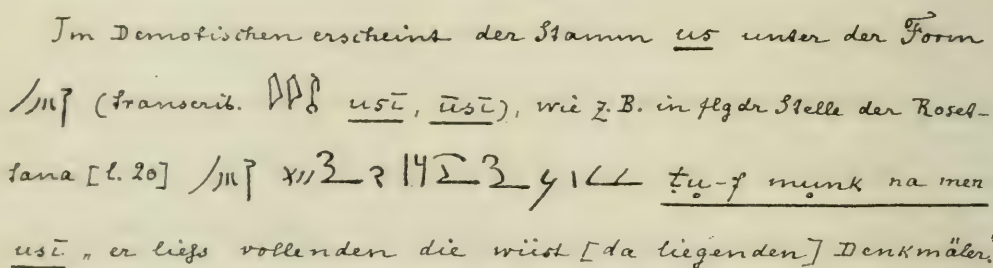 Im Demotischen erscheint der Stamm us unter der Form
(transcrib. usī, ūsī), wie z. B. in flgdr Stelle der Roset-
tana [l. 20] ṭụ-f mụnk na men
usī „er liefs vollenden die wüst [da liegenden] Denkmäler.“